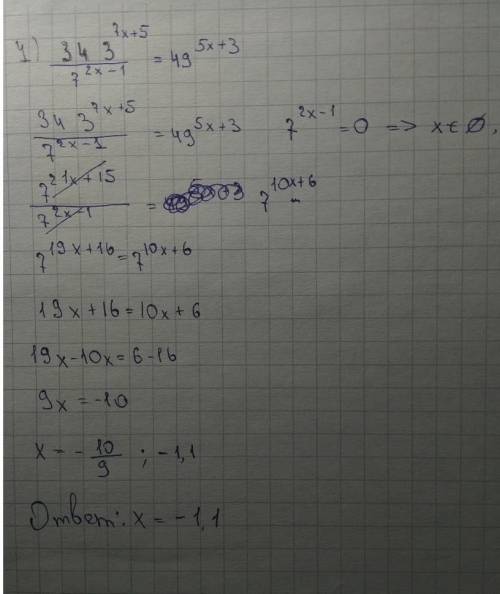 4) 343^{7x+5} / 7^{2x-1} = 49^{5x+3}
343^{7x+5} / 7^{2x-1} = 49^{5x+3}    7^{2x-1} = 0 => x ∈ ∅,
7^{21x+15} / 7^{2x-1} = 7^{10x+6}
7^{19x+16} = 7^{10x+6}
19x + 16 = 10x + 6
19x - 10x = 6 - 16
9x = -10
x = - 10/9 ; -1,1
Ответ: x = -1,1